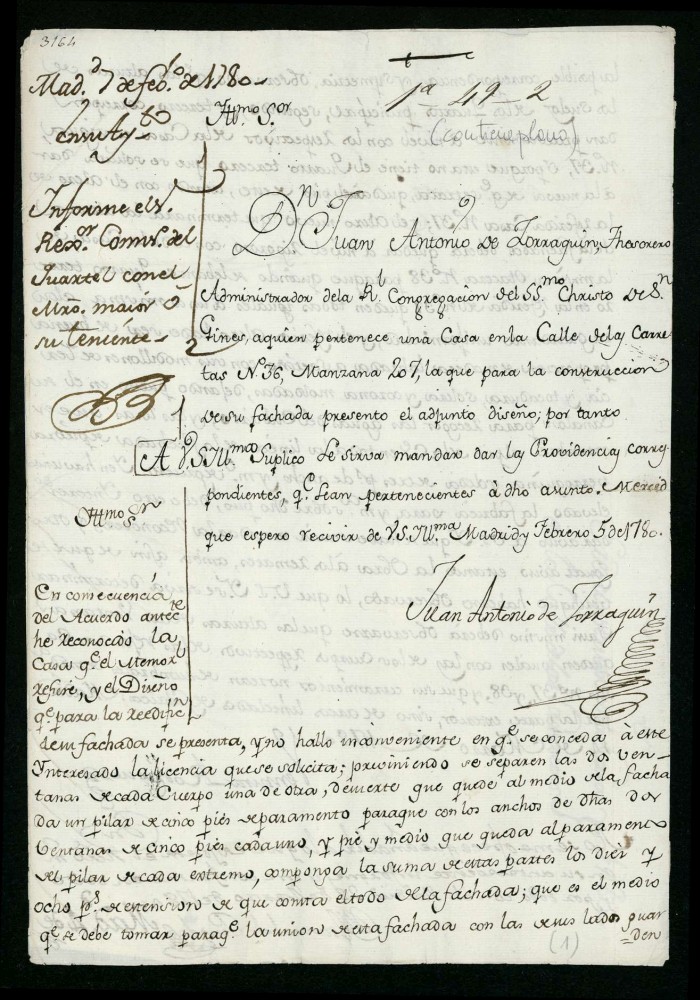 3164
Mad.d 7 de feb.o de 1780
En su Ay.to
Informe el S.
Rexor. Comis. del
Quartel con el
Mro. maior ó
su teniente
1a 49 2
(contiene plano)
Illmo. S.or
Dn. Juan Antonio de Zorraquin, Thesorero
Administrador de la Rl. Congregacion del SSmo. Christo de Sn.
Gines, a quien pertenece una Casa en la Calle de las Carre
tas No. 36, Manzana 207, la que para la construccion
de su fachada presento el adjunto diseño; por tanto
A V.S. Ill.ma Suplico se sirva mandar dar las Providencias corres
pondientes, q.e sean pertenecientes à dho asunto. Merced
que espero recivir de V.S. Ill.ma Madrid y Febrero 5 de 1780.
Juan Antonio de Zorraquin
Illmo. Sr.
En consecuencia
del Acuerdo antec.te
he reconocido la
Casa q.e el Memor.l
refiere, y el Diseño
q.e para la reedific.n
de su fachada se presenta, y no hallo inconveniente en q.e se conceda à este
Interesado la licencia que se solicita; previniendo se separen las dos ven-
tanas de cada Cuerpo una de otra, de suerte que quede al medio de la facha
da un pilar de cinco pies de paramento para que con los anchos de dhas dos
ventanas de cinco pies cada uno, y pie y medio que queda al paramento
del pilar de cada extremo, componga la suma de estas partes los diez y
ocho p.s de extension de que consta el todo de la fachada; que es el medio
q.e se debe tomar paraq.e la union de esta fachada con las de sus lados guar
=den
(1)